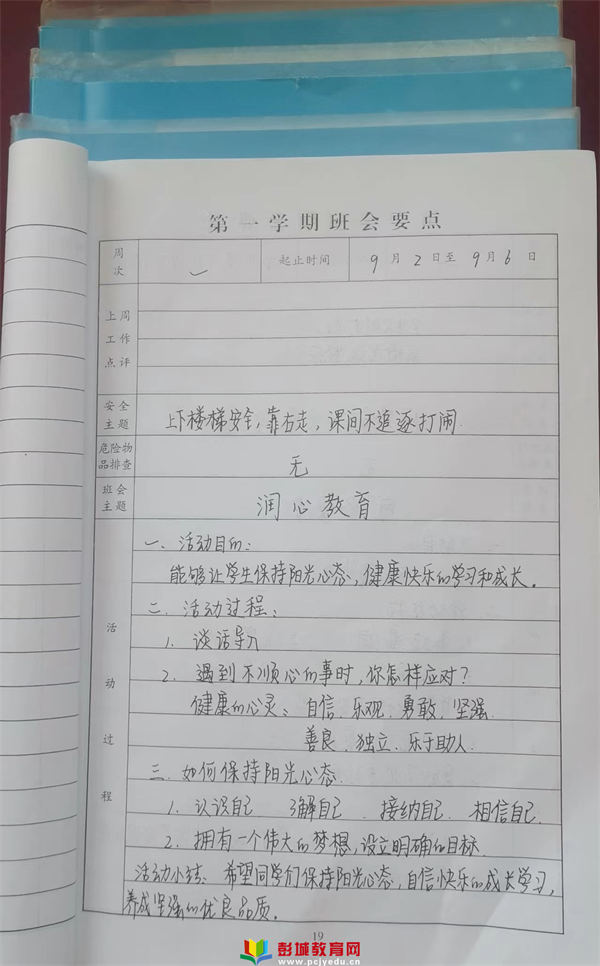 第一学期班会要点
周次 一 起止时间 9月2日至9月6日
上周工作点评
安全主题 上下楼梯安全,靠右走,课间不追逐打闹.
危险物品排查 无
班会主题 润心教育
活动过程
一、活动目的:
能够让学生保持阳光心态,健康快乐的学习和成长。
二、活动过程:
1. 谈话导入
2. 遇到不顺心的事时,你怎样应对?
健康的心灵: 自信、乐观、勇敢、坚强
善良、独立、乐于助人.
三、如何保持阳光心态.
1. 认识自己 了解自己 接纳自己 相信自己.
2. 拥有一个伟大的梦想,设立明确的目标.
活动小结: 希望同学们保持阳光心态,自信快乐的成长学习,
养成坚强的优良品质。
19
彭城教育网
www.pcjyedu.cn